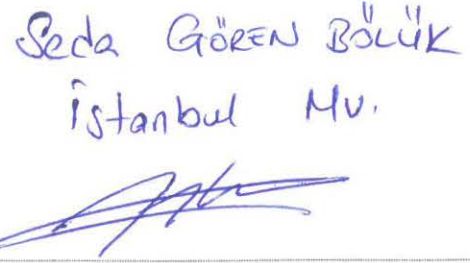 Seda GÖREN BÖLÜK
İstanbul Mv.